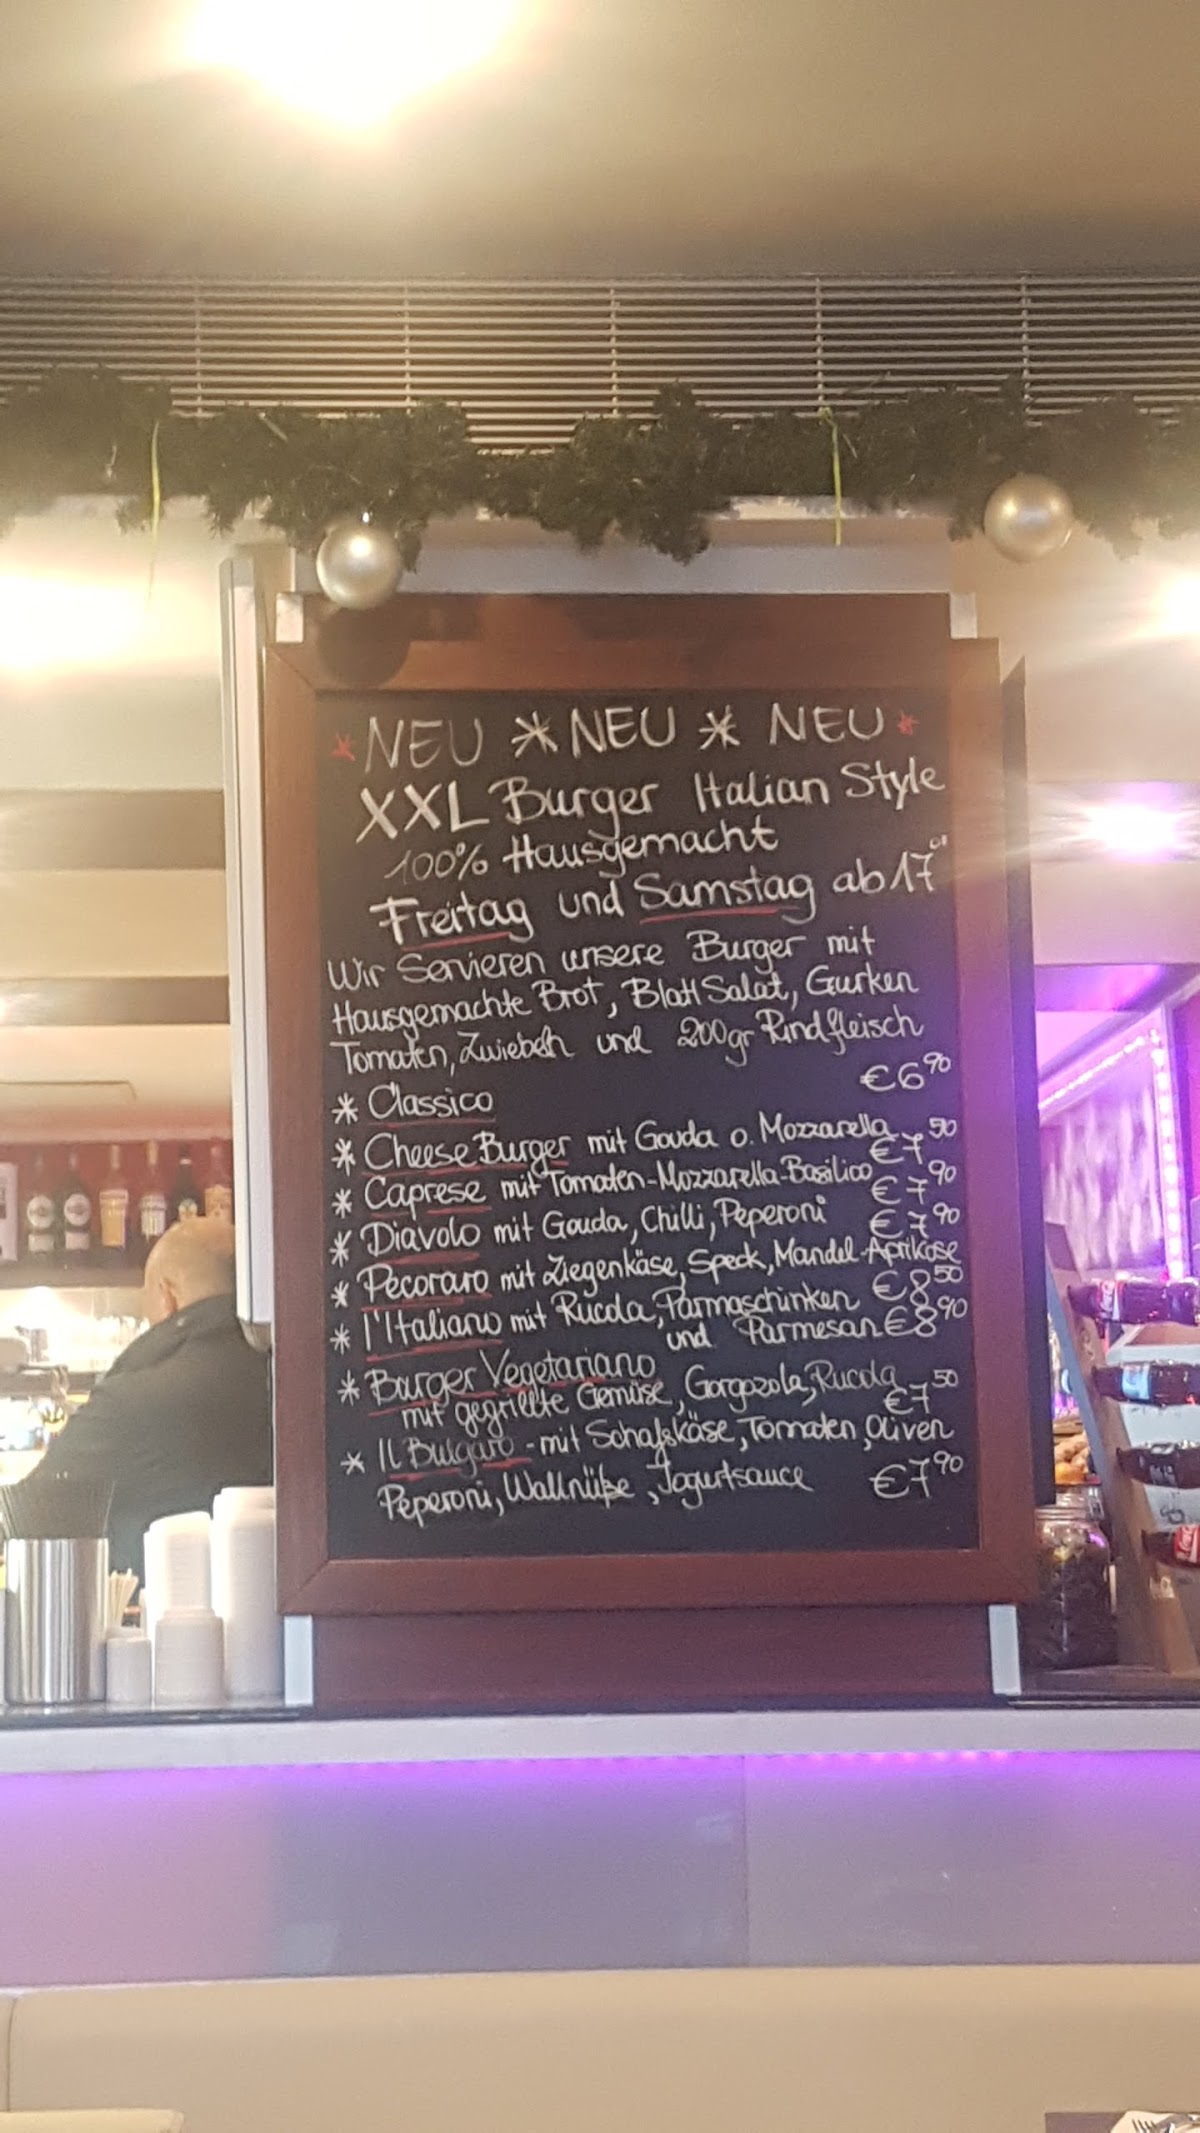 * NEU * NEU * NEU *
XXL Burger Italian Style
100% Hausgemacht
Freitag und Samstag ab 17⁰⁰
Wir Servieren unsere Burger mit
Hausgemachte Brot, Blatt Salat, Gurken
Tomaten, Zwiebeln und 200gr Rindfleisch
* Classico €6⁹⁰
* Cheese Burger mit Gouda o. Mozzarella €7,⁵⁰
* Caprese mit Tomaten-Mozzarella-Basilico €7⁹⁰
* Diavolo mit Gouda, Chilli, Peperoni €7⁹⁰
* Pecoraro mit Ziegenkäse, Speck, Mandel-Aprikose €8⁵⁰
* l'Italiano mit Rucola, Parmaschinken
und Parmesan €8⁹⁰
* Burger Vegetariano
mit gegrillte Gemüse, Gorgozola, Rucola €7⁵⁰
* Il Bulgaro - mit Schafskäse, Tomaten, Oliven
Peperoni, Wallnüße, Jogurtsauce €7⁹⁰